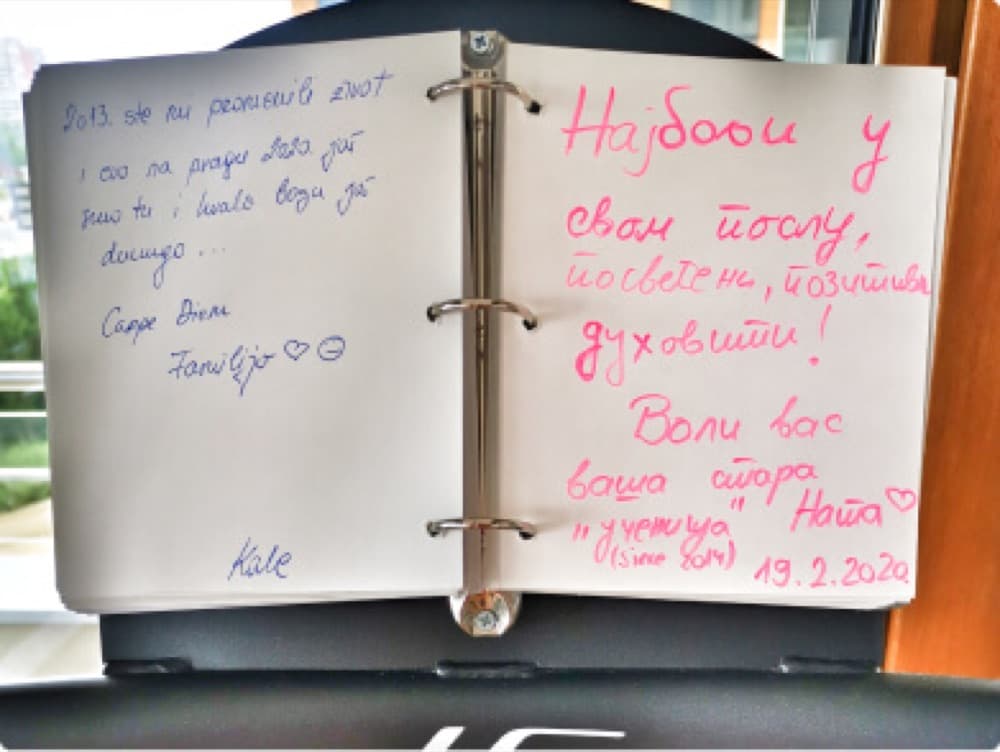 2013. ste mi promenili život
i evo na pragu 2020 još
smo tu i hvala bogu još
dugo ...
Carpe Diem
Familijo ♡ ☺
Kale
Најбољи у
свом послу,
посвећени, позитивни
духовити!
Воли вас
ваша стара
„ученица” Ната ♡
(since 2014) 19.2.2020.